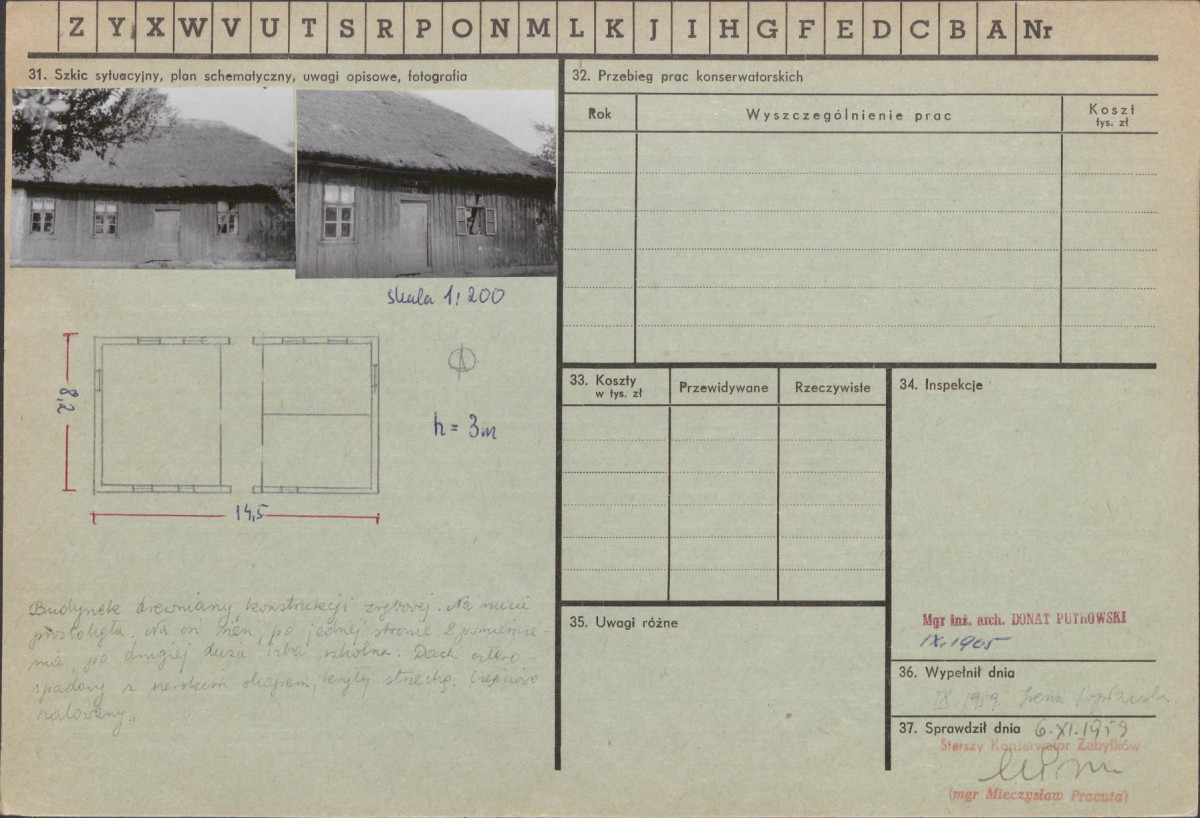 Z Y X W V U T S R P O N M L K J I H G F E D C B A Nr
31. Szkic sytuacyjny, plan schematyczny, uwagi opisowe, fotografia
skala 1:200
8,2
h = 3m
14,5
Budynek drewniany konstrukcji zrębowej. Na rzucie
prostokąta. Na osi sień, po jednej stronie 2 pomieszcze-
nia, po drugiej duża izba szkolna. Dach cztero-
spadowy z szerokim okapem, kryty strzechą. Częściowo
szalowany.
32. Przebieg prac konserwatorskich
Rok
Wyszczególnienie prac
Koszt
tys. zł
33. Koszty
w tys. zł
Przewidywane
Rzeczywiste
34. Inspekcje
Mgr inż. arch. DONAT PUTKOWSKI
IX.1965
35. Uwagi różne
36. Wypełnił dnia
IX. 1959
37. Sprawdził dnia 6.XI.1959
Starszy Konserwator Zabytków
(mgr Mieczysław Pracuta)